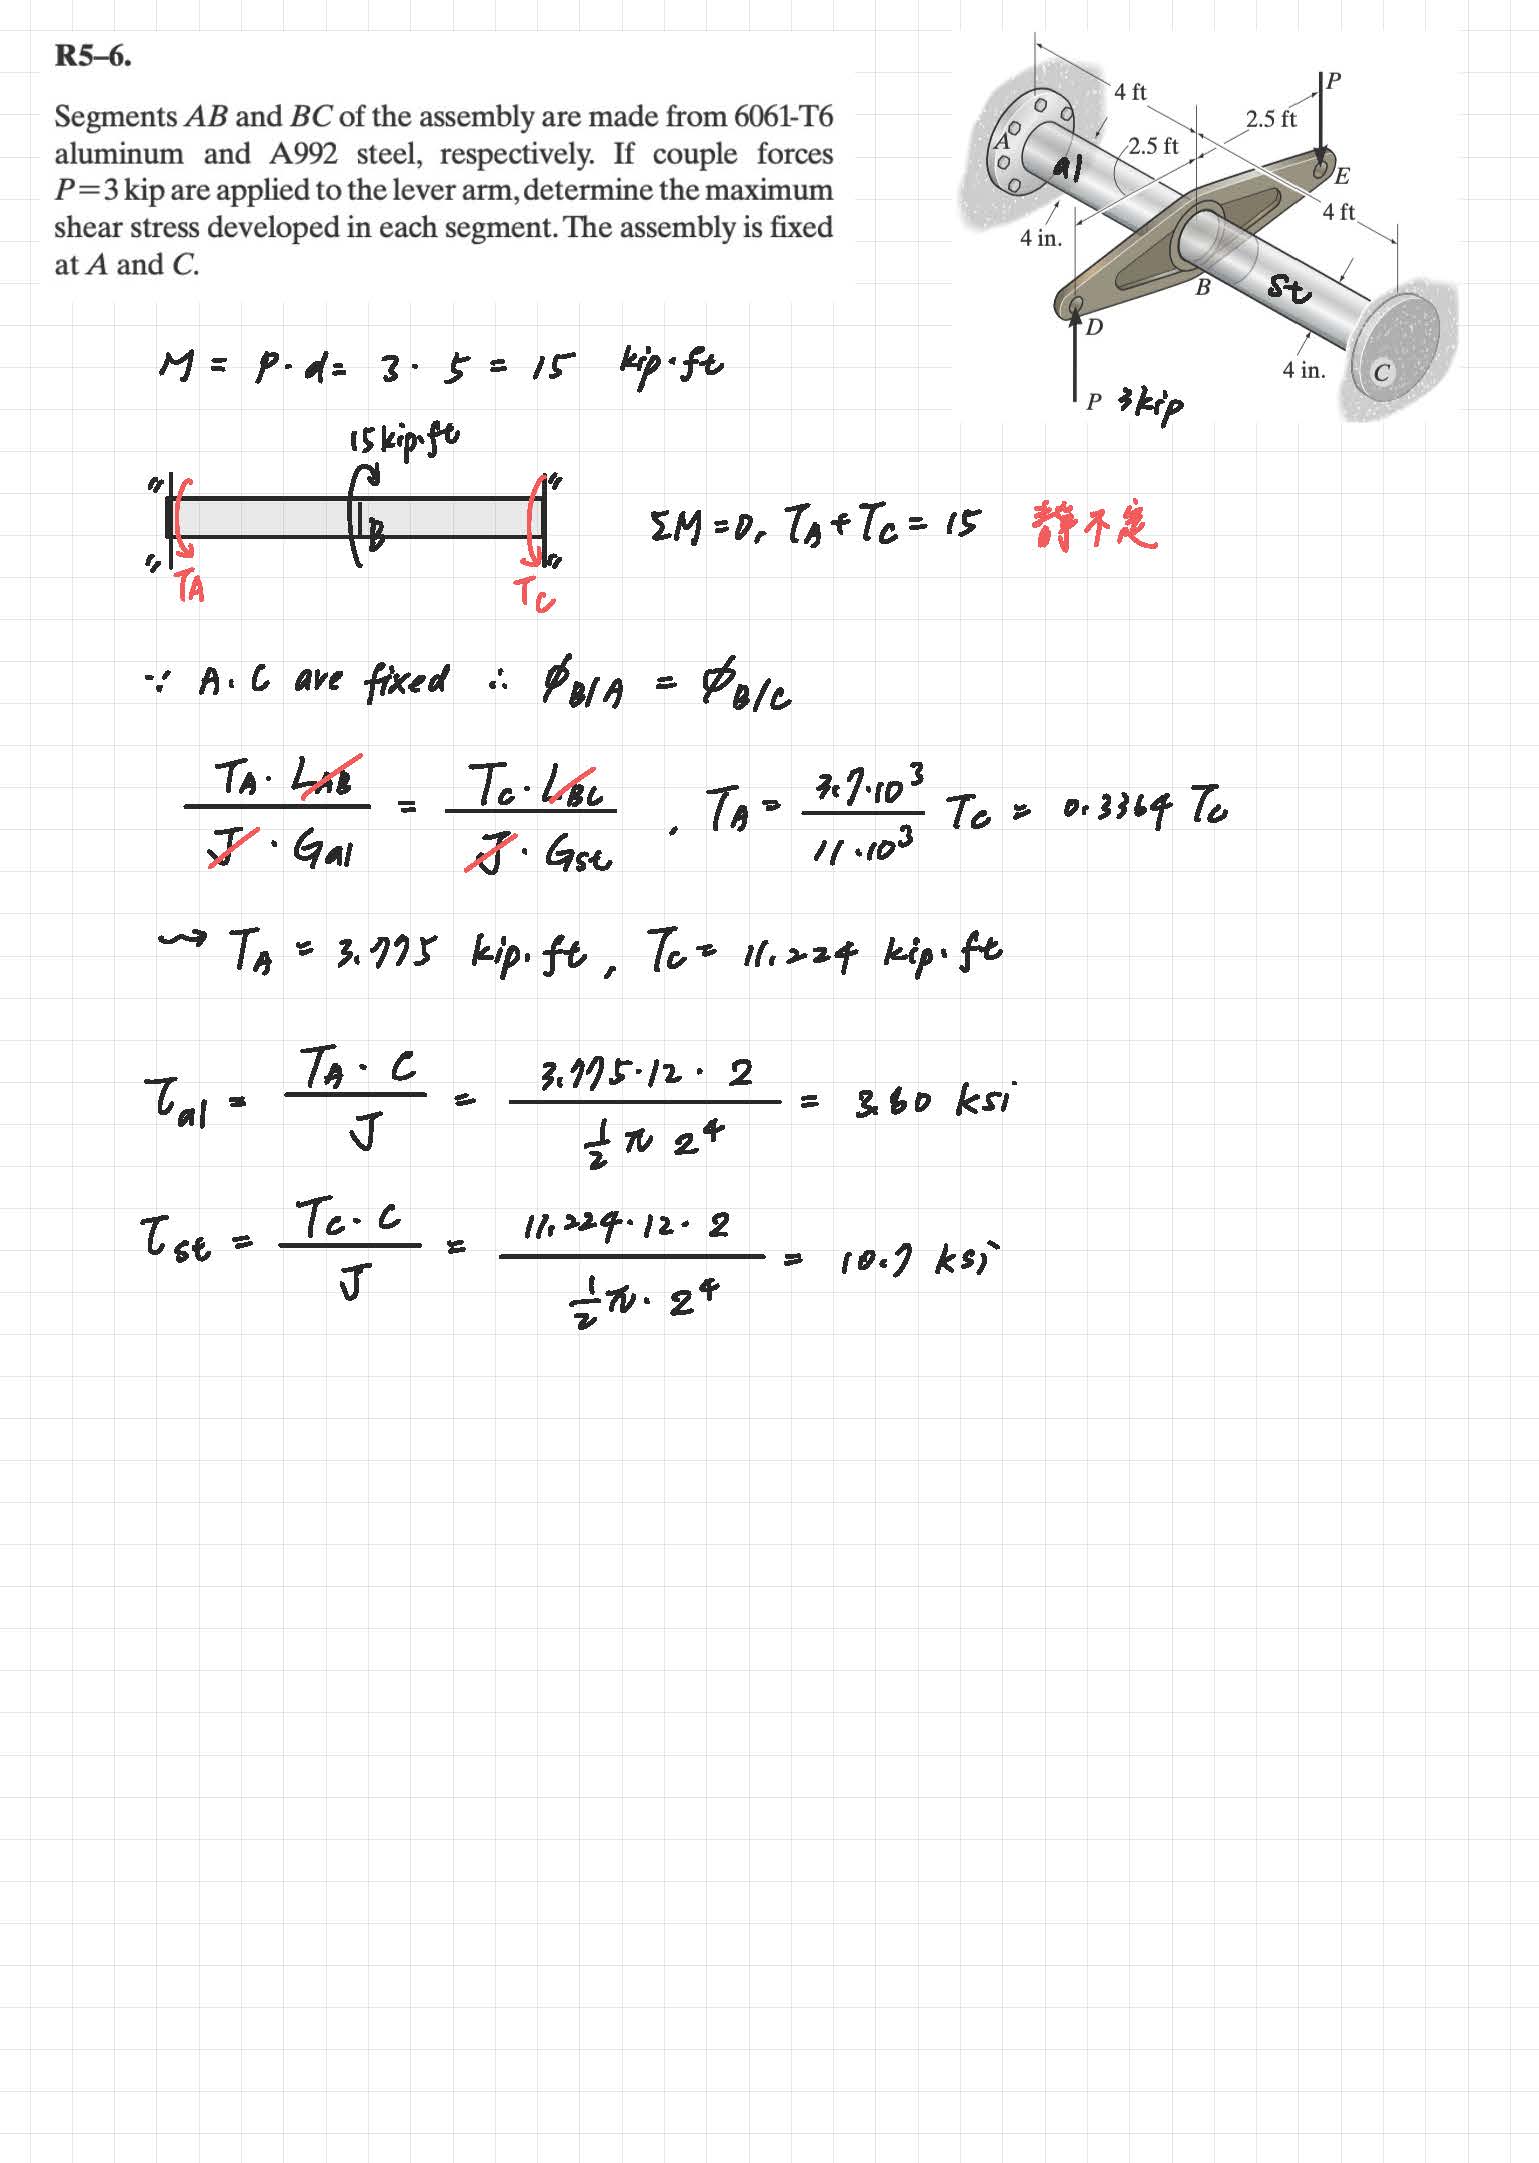 R5–6.
Segments AB and BC of the assembly are made from 6061-T6
aluminum and A992 steel, respectively. If couple forces
P=3 kip are applied to the lever arm, determine the maximum
shear stress developed in each segment. The assembly is fixed
at A and C.
4 ft
P
2.5 ft
A
2.5 ft
al
E
4 ft
4 in.
B
St
D
4 in.
C
P 3kip
M = P · d = 3 · 5 = 15 kip·ft
15 kip·ft
B
TA
TC
ΣM=0, TA + TC = 15 靜不定
∵ A.C are fixed ∴ ϕB/A = ϕB/C
TA · LAB / J · Gal = TC · LBC / J · Gst , TA = 3.7·10³ / 11·10³ TC = 0.3364 TC
⇝ TA = 3.775 kip.ft, TC = 11.224 kip.ft
τal = TA · C / J = 3.775·12·2 / ½ π 2⁴ = 3.60 ksi
τst = TC · C / J = 11.224·12·2 / ½ π · 2⁴ = 10.7 ksi